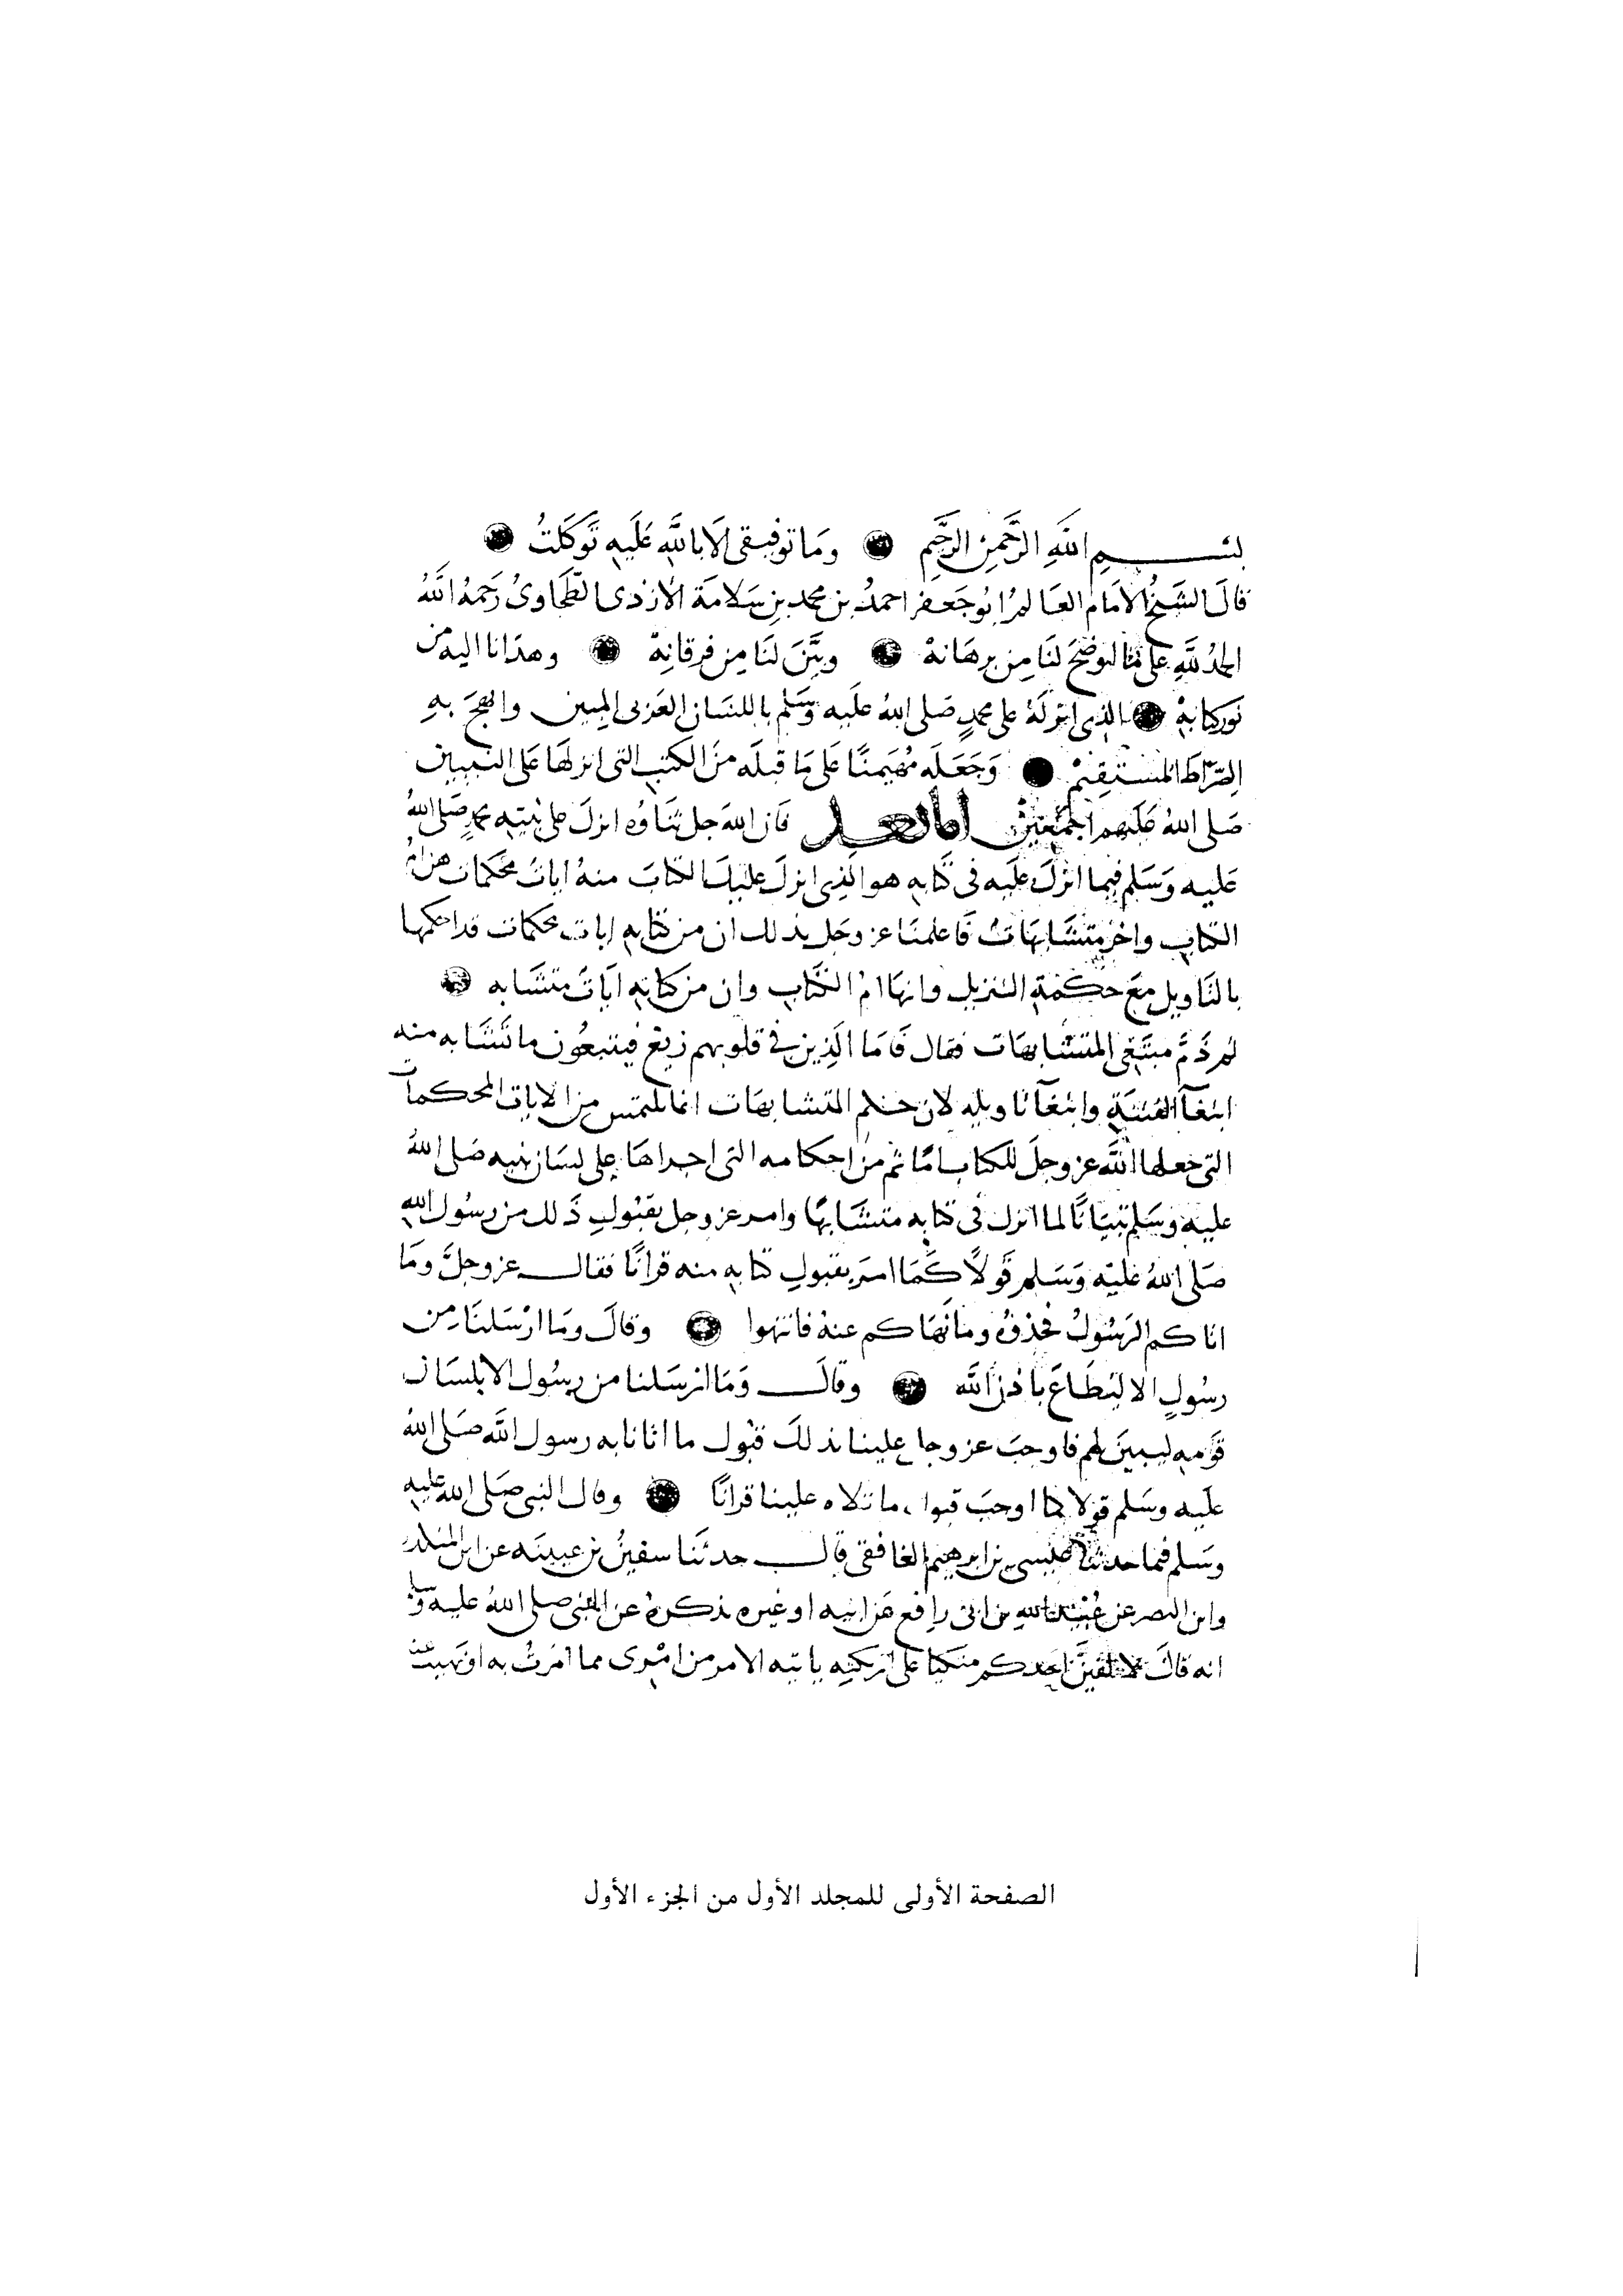 بسم اللهِ الرَّحْمَنِ الرَّحِيمِ وَمَا توفيقى الَا باللَّهِ عَلَيهِ تَوَكَلتُ
قالَ الشَيخُ الامَام العَالمُ ابُو جَعفر احمدُ بن محمد بنِ سَلامَة الازدى الطَحَاوىُ رَحِمهُ اللَّهُ
الحمدُ للَّهِ على مَا اوضحَ لنَا من برهَانهْ وبَيَّنَ لنَا مِن فرقانِهْ وهدَانا اليه من
نور كتابهْ الذى انزلَهُ على محمدٍ صَلى اللهُ علَيه وَسَلم باللسَان العَربى المبين وانهجَ بهِ
الصّرَاطَ المستقِيمْ وَجَعَلَه مُهَيمنًا عَلى مَا قبلَه منَ الكتبِ التى انزلهَا عَلى النبيين
صَلى اللهُ عَليهم اجمَعين اما بعد فان اللهَ جل ثنَاؤه انزلَ على نبيّه محمدٍ صَلى اللهُ
عَليه وَسَلم فيما انزلَ علَيه فى كتابهِ هو الذِى انزلَ عليكَ الكتابَ منهُ اياتٌ محكمات هن امُ
الكتابِ واخر متشَابهَاتٌ فَاعلمنَا عز وجَل بذلك ان من كتابهِ ايات محكمات قد احكمها
بالتَاويل مَعَ حكمة التنزيل وانهَا امُ الكتَابِ وان من كتابهِ ايَاتٌ متشَابه
ثم ذَمَّ مبتغى المتشَابهَات فقال فَامَا الَذِين في قلوبهم زيغ فيتبعُون ما تَشَابه منه
ابتغآ الفتنَةِ وابتغآ تاويله لان حكم المتشابهَات انما يلتمس من الايات المحكمات
التى جعلها اللَّه عز وجلَ للكتاب امًا ثم من احكامه التى اجراهَا على لسَان نبيه صَلى اللهُ
عليهِ وَسَلم تبيَانًا لما انزل فى كتابهِ متشَابهًا وامر عز وجل بقبُولِ ذَلك من رسُول اللهِ
صَلى اللهُ عَليْهِ وَسَلم قَولًا كَمَا امرَ بقبولِ كتابهِ منه قرانًا فقال عز وجلَّ ومَا
اتاكم الرَسُولُ فخذوُه ومَا نهَاكم عنهُ فانتهوا وقالَ ومَا ارْسَلنَا مِن
رسُولٍ الا ليُطَاعَ باذن اللَّه وقالَ وَمَا ارسَلنا من رسُول الا بلسَان
قَومهِ ليبينَ لهم فاوجبَ عز وجل علينا بذلكَ قبُول ما اتانا به رسول اللَّه صَلى اللهُ
علَيه وسَلم قولا كما اوجبَ قبول ما تلاه علينا قرانًا وقال النبى صَلى الله عليه
وسَلم فيما حدثنا عيسى بن ابرهيم الغافقى قال حدثنَا سفينُ بن عيينَه عن ابن المنكدر
وابن النضر عن عُبيد اللهِ بن ابى رافع عن ابيه او غيره يذكرهُ عن النبى صلى اللهُ عليه وسلم
انه قالَ لا الفينَّ احَدكم متكئا على اريكتِه ياتيه الامر من امْرى مما امَرتُ به او نهيت عنه
الصفحة الأولى للمجلد الأول من الجزء الأول